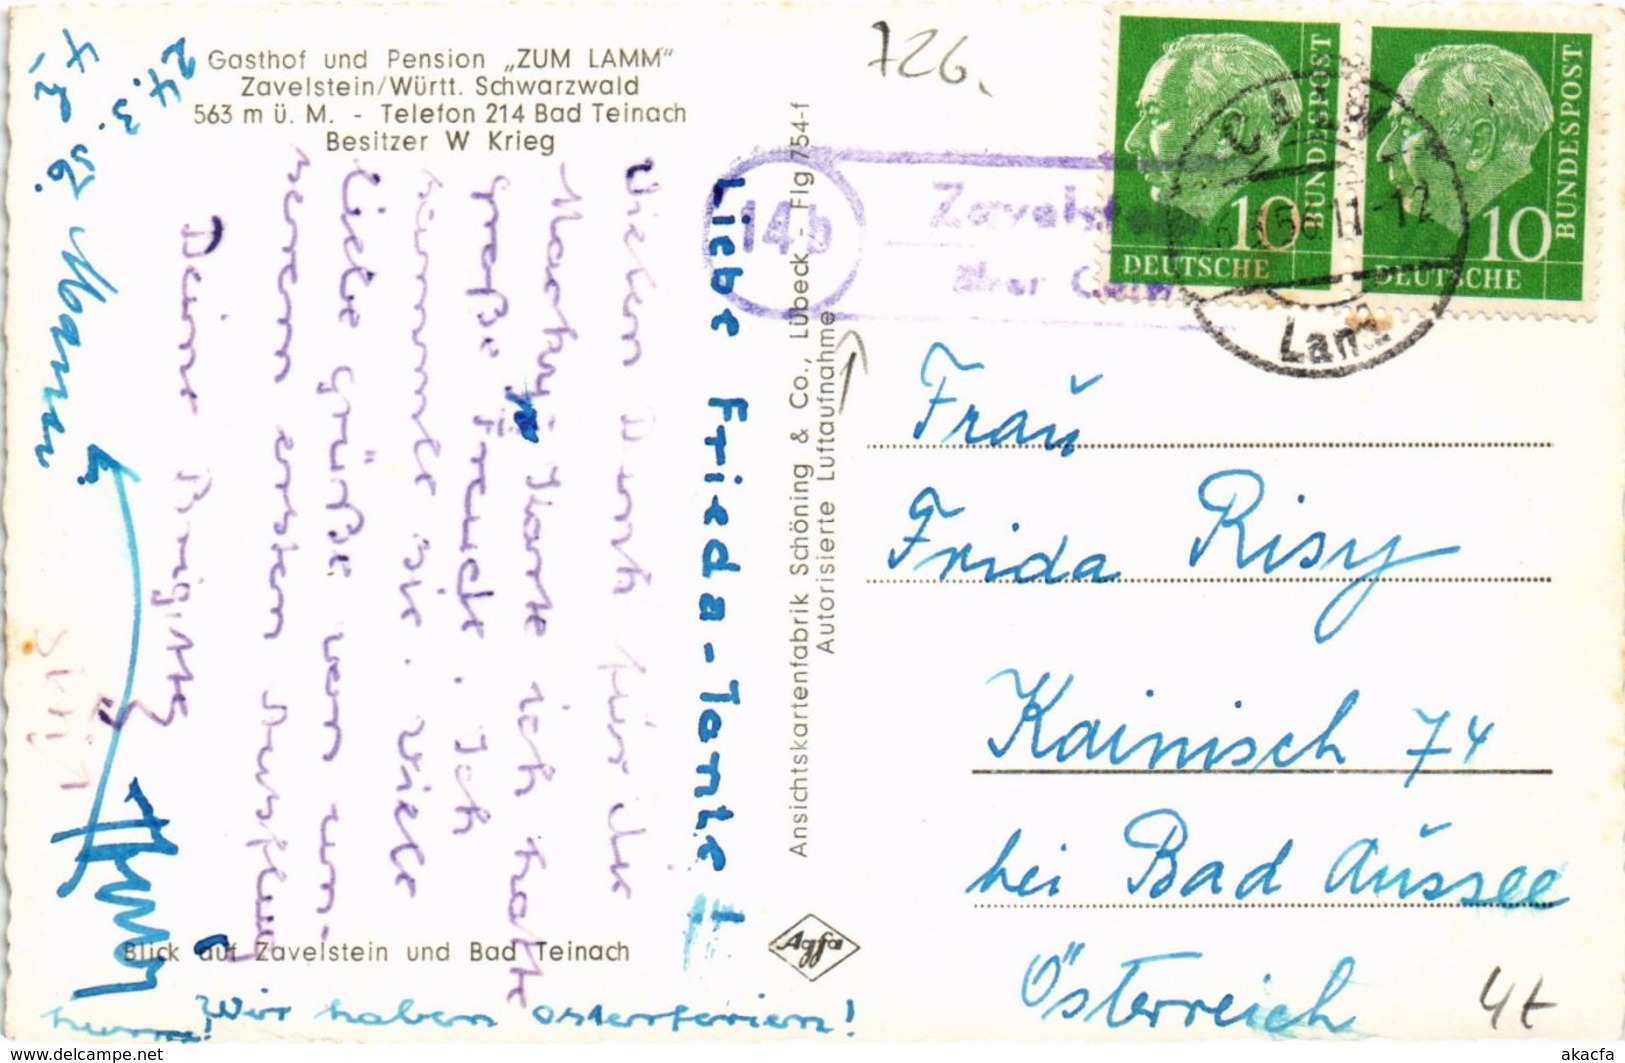 Gasthof und Pension „ZUM LAMM"
Zavelstein/Württ. Schwarzwald
563 m ü. M. - Telefon 214 Bad Teinach
Besitzer W Krieg
24. 3. 56.
Liebe Frieda-Tante!
Vielen Dank für die
Karte ich hatte
große Freude. Ich
Viele
liebe Grüße von un-
serem ersten Ausflug
Deine Brigitte
Wir haben osterferien!
hurra!
Blick auf Zavelstein und Bad Teinach
Ansichtskartenfabrik Schöning & Co., Lübeck - Flg 754-f
Autorisierte Luftaufnahme
Agfa
726.
14b
Zavelstein
über Calw
DEUTSCHE
BUNDESPOST
10
DEUTSCHE
BUNDESPOST
10
Calw
11-12
Land
Frau
Frida Risy
Kainisch 74
bei Bad Aussee
Österreich
4t
www.delcampe.net
akacfa